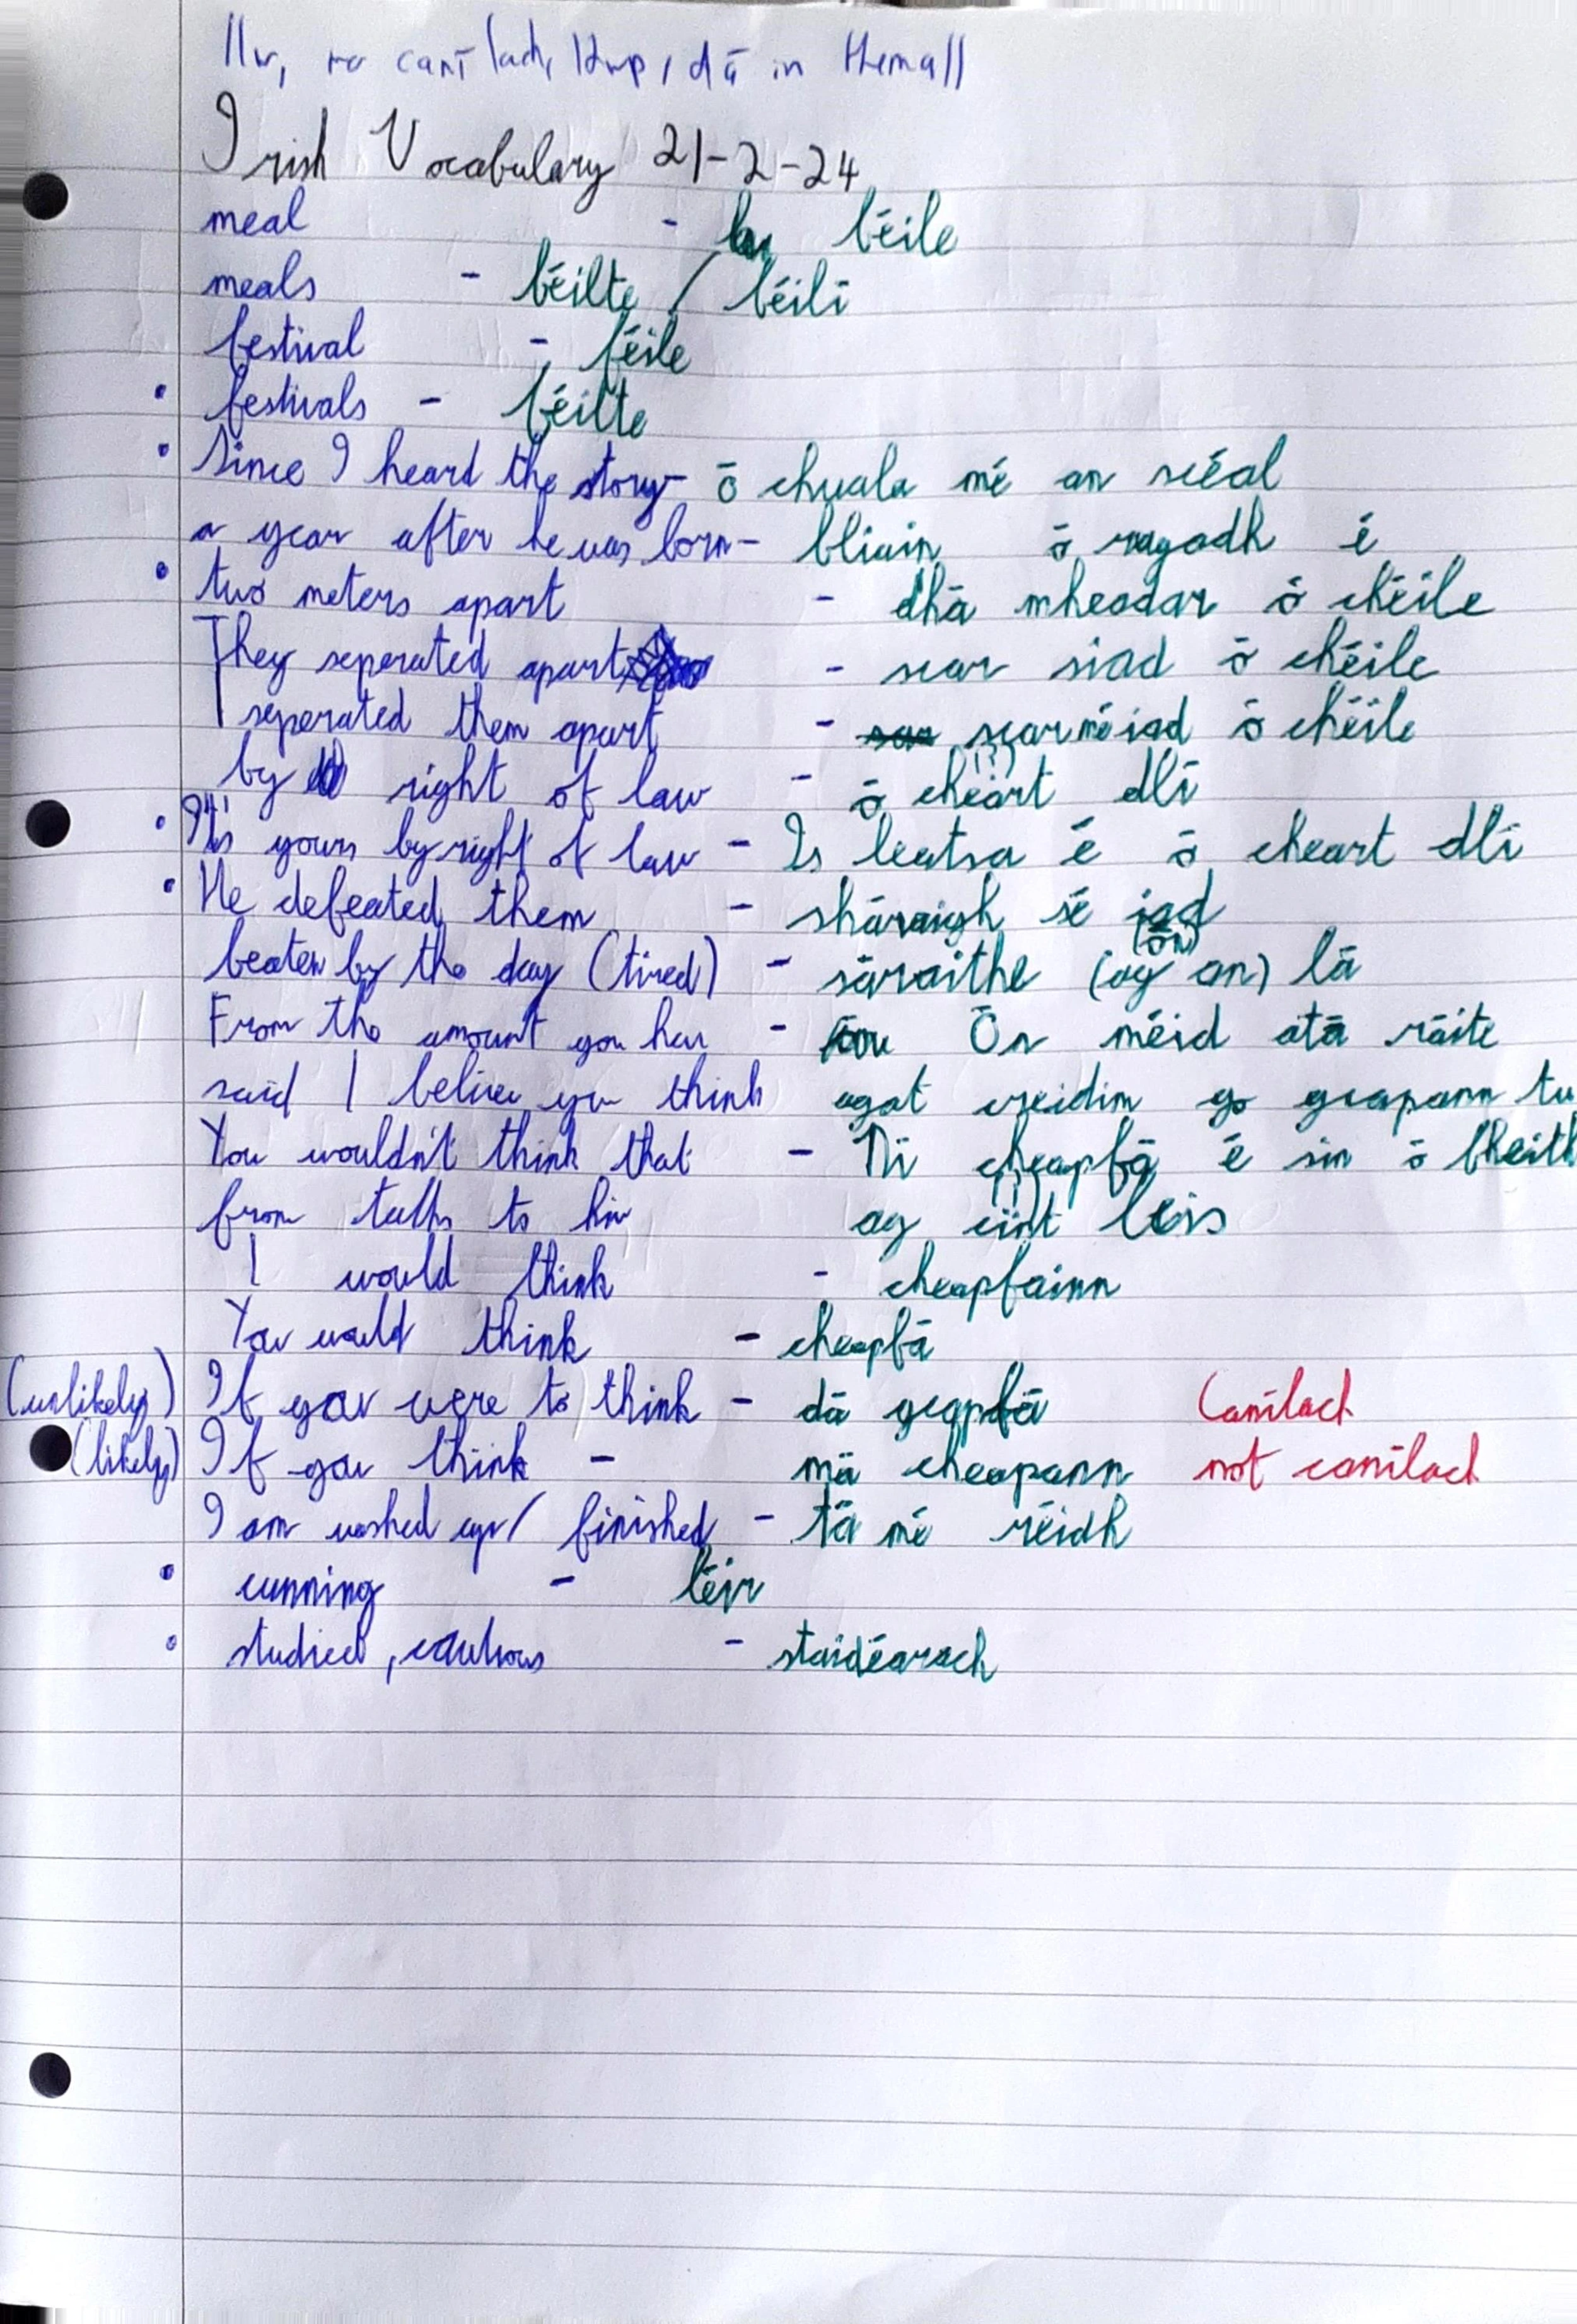 in them all
Irish Vocabulary 21-2-24
meal - béile
meals - béilte / béilí
festival - féile
• festivals - féilte
• Since I heard the story - ó chuala mé an scéal
a year after he was born - bliain ó rugadh é
• two meters apart - dhá mheadar ó chéile
They seperated apart - scar siad ó chéile
I seperated them apart - scar mé iad ó chéile
by right of law - ó cheart dlí
• It's yours by right of law - Is leatsa é ó cheart dlí
• He defeated them - sháraigh sé iad
(ón)
beaten by the day (tired) - sáraithe (ag an) lá
From the amount you hav - Ón méid atá ráite
said I believ you think agat creidim go gceapann tu
You wouldn't think that - Ní cheapfá é sin ó bheith
from talk to him ag caint leis
I would think - cheapfainn
You would think - cheapfá
(unlikely) If you were to think - dá gceapfá Canílach
(likely) If you think - má cheapann not canílach
I am washed up / finished - tá mé réidh
• cunning - léir
• studied, cautious - staidéarach